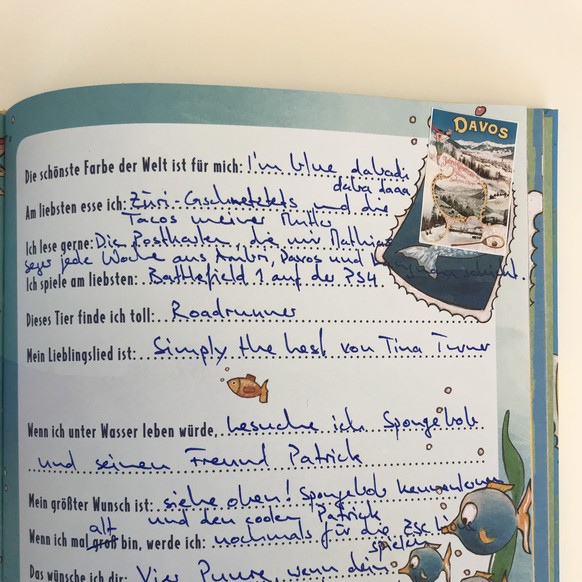 DAVOS
Die schönste Farbe der Welt ist für mich: I'm blue dabadi
daba daaa
Am liebsten esse ich: Züri-Gschnetzlets und die
Tacos meiner Mutter
Ich lese gerne: Die Postkarten, die mir Mathias
Seger jede Woche aus Ambri, Davos und schickt.
Ich spiele am liebsten: Battlefield 1 auf der PS4
Dieses Tier finde ich toll: Roadrunner
Mein Lieblingslied ist: Simply the best von Tina Turner
Wenn ich unter Wasser leben würde, besuche ich Spongebob
und seinen Freund Patrick
Mein größter Wunsch ist: siehe oben! Spongebob kennenlernen
und den coolen Patrick
alt
Wenn ich mal groß bin, werde ich: nochmals für die ZSC
spielen
Das wünsche ich dir: Vier Punkte, wenn dein